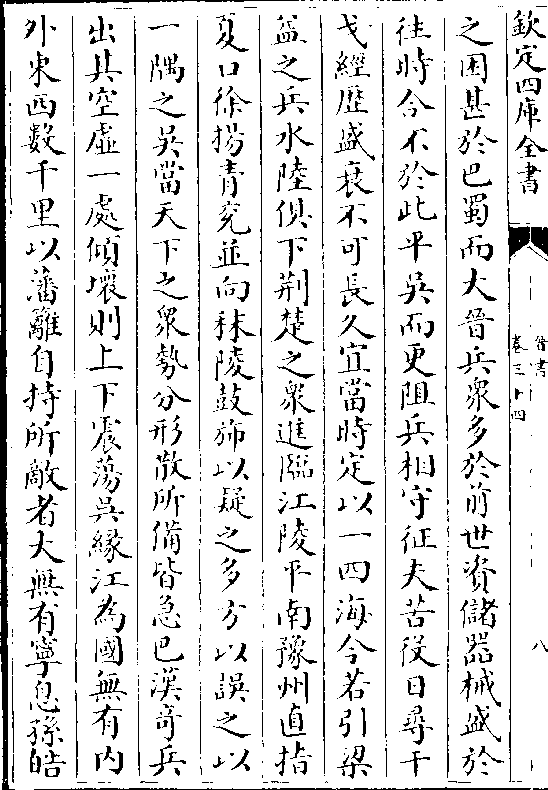 欽定四庫全書
晉書
卷三十四
八
之困甚於巴蜀而大晉兵衆多於前世資儲器械盛於
往時今不於此平吳而更阻兵相守征夫苦役日尋干
戈經歷盛衰不可長久宜當時定以一四海今若引梁
益之兵水陸俱下荆楚之衆進臨江陵平南豫州直指
夏口徐揚青兖並向秣陵鼓斾以疑之多方以誤之以
一隅之吳當天下之衆勢分形散所備皆急巴漢奇兵
出其空虛一處傾壞則上下震蕩吳緣江為國無有内
外東西數千里以藩籬自持所敵者大無有寧息孫皓